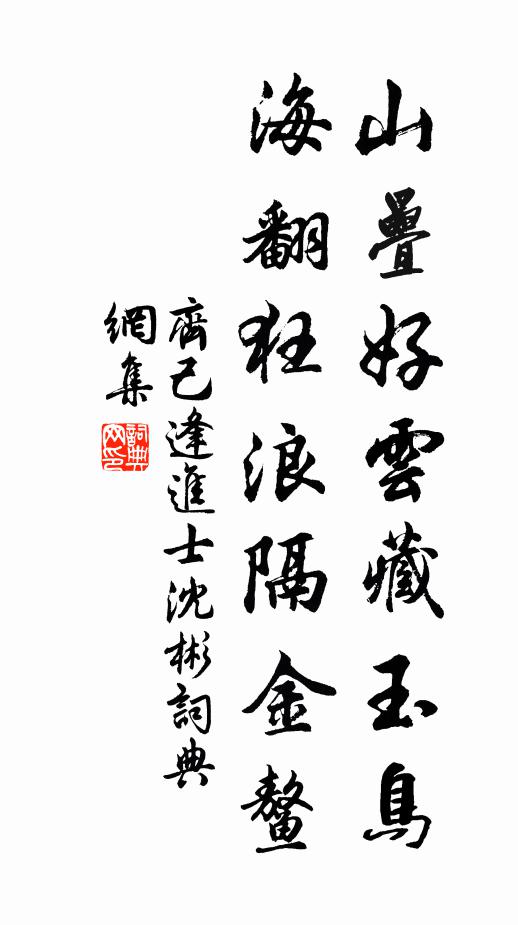 山疊好雲藏玉鳥
海翻狂浪隔金鰲
齊己逢進士沈彬詞典
網集
詞典網印